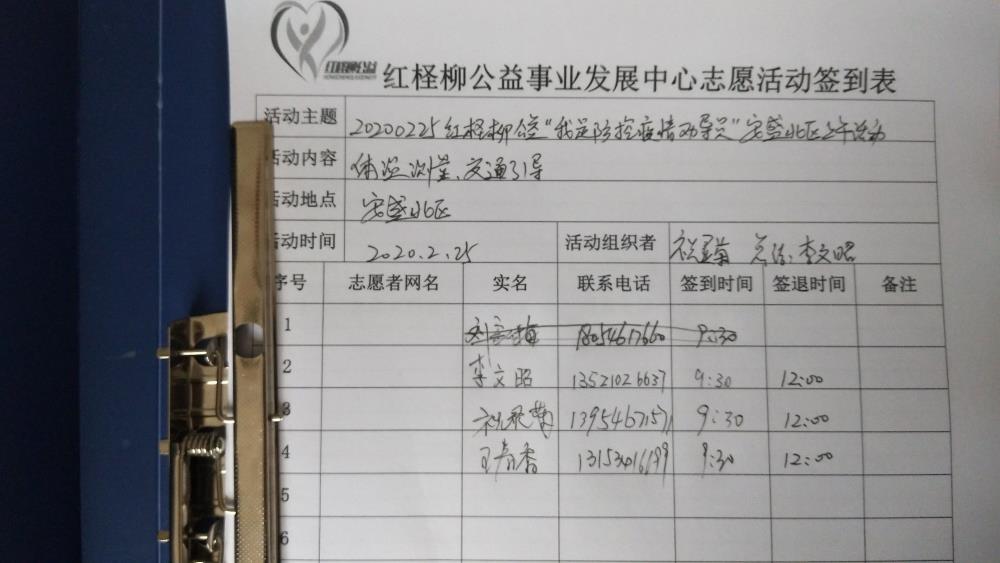 红柽柳公益
红柽柳公益事业发展中心志愿活动签到表
活动主题 20200225红柽柳公益"我是防控疫情劝导员"安盛北区上午活动
活动内容 体温测量、交通引导
活动地点 安盛北区
活动时间 2020.2.25 活动组织者 李文昭
序号 志愿者网名 实名 联系电话 签到时间 签退时间 备注
1 18054617660 9:30
2 李文昭 13521026637 9:30 12:00
3 13954671571 9:30 12:00
4 王青香 9:30 12:00
5
6